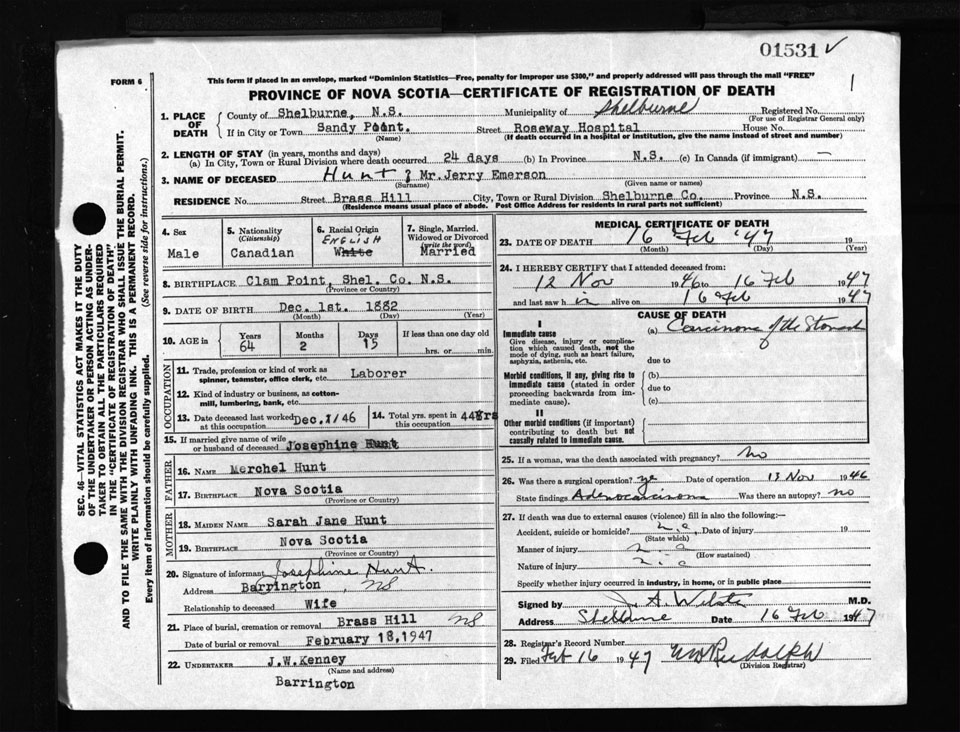 01531 ✓
FORM 6
This form if placed in an envelope, marked "Dominion Statistics—Free, penalty for improper use $300," and properly addressed will pass through the mail "FREE"
1
PROVINCE OF NOVA SCOTIA—CERTIFICATE OF REGISTRATION OF DEATH
SEC. 46—VITAL STATISTICS ACT MAKES IT THE DUTY
OF THE UNDERTAKER OR PERSON ACTING AS UNDER-
TAKER TO OBTAIN ALL THE PARTICULARS REQUIRED
IN THE "CERTIFICATE OF REGISTRATION OF DEATH"
AND TO FILE THE SAME WITH THE DIVISION REGISTRAR WHO SHALL ISSUE THE BURIAL PERMIT.
WRITE PLAINLY WITH UNFADING INK. THIS IS A PERMANENT RECORD.
Every item of information should be carefully supplied. (See reverse side for instructions.)
1. PLACE OF DEATH
County of Shelburne, N.S. Municipality of Shelburne Registered No.
(For use of Registrar General only)
If in City or Town Sandy Point. Street Roseway Hospital House No.
(Name) (If death occurred in a hospital or institution, give the name instead of street and number)
2. LENGTH OF STAY (in years, months and days)
(a) In City, Town or Rural Division where death occurred 24 days (b) In Province N.S. (c) In Canada (if immigrant) —
3. NAME OF DECEASED Hunt, Mr. Jerry Emerson
(Surname) (Given name or names)
RESIDENCE No. Street Brass Hill City, Town or Rural Division Shelburne Co. Province N.S.
(Residence means usual place of abode. Post Office Address for residents in rural parts not sufficient)
4. Sex
Male
5. Nationality
(Citizenship)
Canadian
6. Racial Origin
ENGLISH
White
7. Single, Married,
Widowed or Divorced
(write the word)
Married
8. BIRTHPLACE Clam Point, Shel. Co. N.S.
(Province or Country)
9. DATE OF BIRTH Dec. 1st. 1882
(Month) (Day) (Year)
10. AGE in Years Months Days If less than one day old
64 2 15 hrs. or min.
OCCUPATION
11. Trade, profession or kind of work as
spinner, teamster, office clerk, etc. Laborer
12. Kind of industry or business, as cotton-
mill, lumbering, bank, etc.
13. Date deceased last worked
at this occupation Dec. 1/46
14. Total yrs. spent in
this occupation 44 yrs
15. If married give name of wife
or husband of deceased Josephine Hunt
FATHER
16. NAME Merchel Hunt
17. BIRTHPLACE Nova Scotia
(Province or Country)
MOTHER
18. MAIDEN NAME Sarah Jane Hunt
19. BIRTHPLACE Nova Scotia
(Province or Country)
20. Signature of informant Josephine Hunt.
Address Barrington, NS
Relationship to deceased Wife
21. Place of burial, cremation or removal Brass Hill NS
Date of burial or removal February 18, 1947
22. UNDERTAKER J.W. Kenney
(Name and address)
Barrington
MEDICAL CERTIFICATE OF DEATH
23. DATE OF DEATH 16 Feb '47 19
(Month) (Day) (Year)
24. I HEREBY CERTIFY that I attended deceased from:
12 Nov 1946 to 16 Feb 1947
and last saw h im alive on 16 Feb 1947
CAUSE OF DEATH
I
Immediate cause
Give disease, injury or complica-
tion which caused death, not the
mode of dying, such as heart failure,
asphyxia, asthenia, etc.
(a) Carcinoma of the Stomach
due to
Morbid conditions, if any, giving rise to
immediate cause (stated in order
proceeding backwards from im-
mediate cause).
(b)
due to
(c)
II
Other morbid conditions (if important)
contributing to death but not
causally related to immediate cause.
25. If a woman, was the death associated with pregnancy? no
26. Was there a surgical operation? yes Date of operation 13 Nov 1946
State findings Adenocarcinoma Was there an autopsy? no
27. If death was due to external causes (violence) fill in also the following:—
Accident, suicide or homicide? n.a. Date of injury 19
(State which)
Manner of injury n.a
(How sustained)
Nature of injury n.a
Specify whether injury occurred in industry, in home, or in public place
Signed by J. A. M.D.
Address Shelburne Date 16 Feb 1947
28. Registrar's Record Number
29. Filed Feb 16 1947 Rudolph
(Division Registrar)